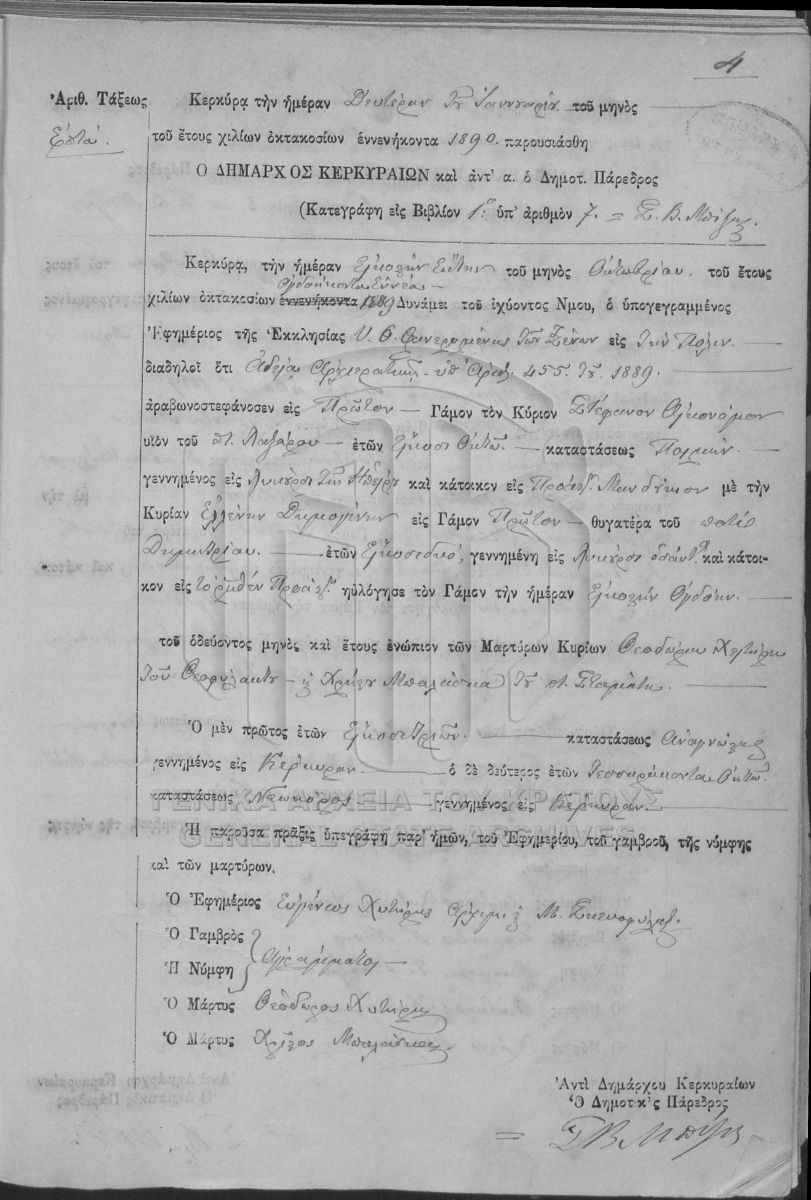 4
Ἀριθ. Τάξεως
Ἑπτά.
Κερκύρᾳ τὴν ἡμέραν Δευτέραν τοῦ Ἰανουαρίου τοῦ μηνὸς
τοῦ ἔτους χιλίων ὀκτακοσίων ἐννενήκοντα 1890. παρουσιάσθη
Ο ΔΗΜΑΡΧΟΣ ΚΕΡΚΥΡΑΙΩΝ καὶ ἀντ' α. ὁ Δημοτ. Πάρεδρος
(Κατεγράφη εἰς Βιβλίον 1ον ὑπ' ἀριθμὸν 7.
Κερκύρᾳ, τὴν ἡμέραν Εἰκοστὴν Ἕκτην τοῦ μηνὸς Ὀκτωβρίου. τοῦ ἔτους
ὀγδοήκοντα ἐννέα
χιλίων ὀκτακοσίων ἐννενήκοντα 1889 Δυνάμει τοῦ ἰχύοντος Νμου, ὁ ὑπογεγραμμένος
Ἐφημέριος τῆς Ἐκκλησίας Υ. Θ. Φανερωμένης τῶν Ξένων εἰς τὴν Πόλιν.
διαδηλοῖ ὅτι Ἀδείᾳ Ἀρχιερατικῇ ὑπ' Ἀριθ. 455. τοῦ 1889.
ἀραβωνοστεφάνοσεν εἰς Πρῶτον Γάμον τὸν Κύριον Στέφανον Οἰκονόμον
υἱὸν τοῦ π. Λαζάρου ἐτῶν εἴκοσι ὀκτώ. καταστάσεως
γεννημένος εἰς τῆς Ἠπείρου καὶ κάτοικον εἰς Προάστ. Μανδύκιον μὲ τὴν
Κυρίαν Ἑλένην εἰς Γάμον Πρῶτον θυγατέρα τοῦ ποτὲ
Δημητρίου. ἐτῶν Εἰκοσιδύο, γεννημένη εἰς καὶ κάτοι-
κον εἰς τὸ ῥηθὲν Προάστ. ηὐλόγησε τὸν Γάμον τὴν ἡμέραν Εἰκοστὴν Ὀγδόην.
τοῦ ὁδεύοντος μηνὸς καὶ ἔτους ἐνώπιον τῶν Μαρτύρων Κυρίων Θεοδώρου Χυτήρη
τοῦ Θεοφυλάκτου Μπαλάσκα τοῦ π. Σταμάτη.
Ὁ μὲν πρῶτος ἐτῶν Εἴκοσι τριῶν. καταστάσεως Ἀναγνώστης
γεννημένος εἰς Κέρκυραν ὁ δὲ δεύτερος ἐτῶν Τεσσαράκοντα ὀκτώ.
καταστάσεως Νεωκόρος γεννημένος εἰς Κέρκυραν.
ΓΕΝΙΚΑ ΑΡΧΕΙΑ ΤΟΥ ΚΡΑΤΟΥΣ
GENERAL STATE ARCHIVES
Ἡ παροῦσα πρᾶξις ὑπεγράφη παρ' ἡμῶν, τοῦ Ἐφημερίου, τοῦ γαμβροῦ, τῆς νύμφης
καὶ τῶν μαρτύρων.
Ὁ Ἐφημέριος Εὐμένιος Χυτήρης
Ὁ Γαμβρὸς
Ἡ Νύμφη Ἀγράμματοι
Ὁ Μάρτυς Θεόδωρος Χυτήρης
Ὁ Μάρτυς Μπαλάσκας
Ἀντὶ Δημάρχου Κερκυραίων
Ὁ Δημοτικὸς Πάρεδρος